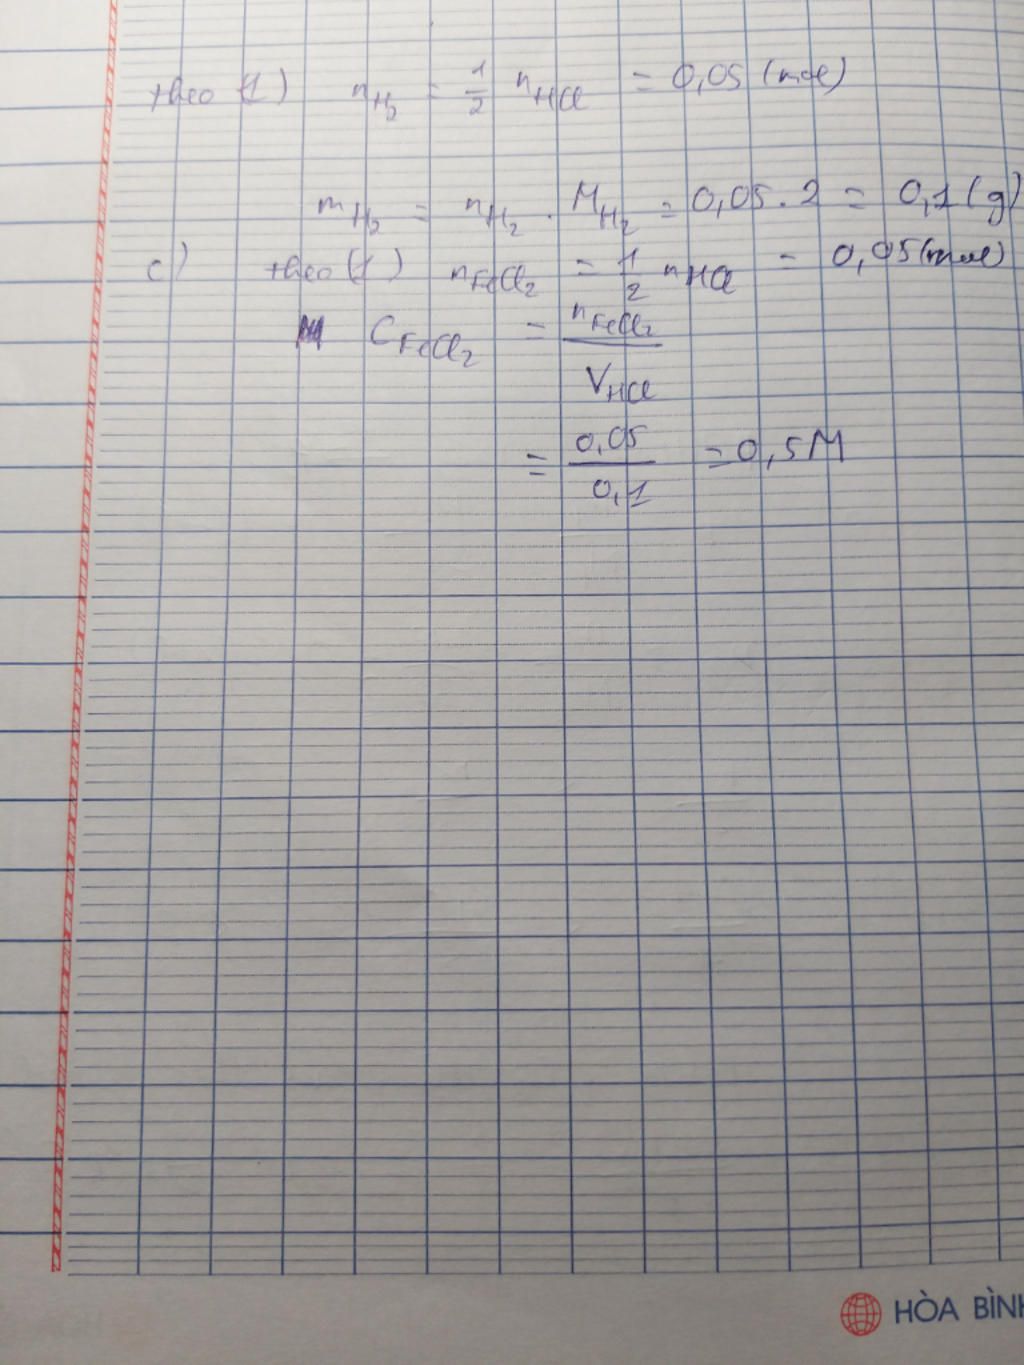 theo (1) nH2 = 1/2 nHCl = 0,05 (mol)
mH2 = nH2 . MH2 = 0,05 . 2 = 0,1 (g)
c) theo (1) nFeCl2 = 1/2 nHCl = 0,05 (mol)
CFeCl2 = nFeCl2 / VHCl
= 0,05 / 0,1 = 0,5M
HÒA BÌNH